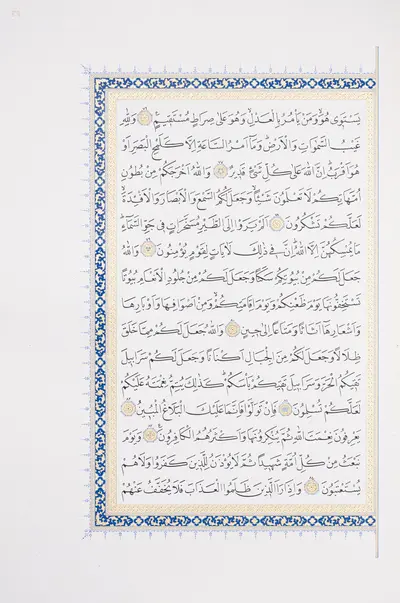 يَسْتَوِي هُوَ وَمَنْ يَأْمُرُ بِالْعَدْلِ وَهُوَ عَلَى صِرَاطٍ مُسْتَقِيمٍ وَلِلَّهِ
غَيْبُ السَّمَوَاتِ وَالْأَرْضِ وَمَا أَمْرُ السَّاعَةِ إِلَّا كَلَمْحِ الْبَصَرِ أَوْ
هُوَ أَقْرَبُ إِنَّ اللَّهَ عَلَى كُلِّ شَيْءٍ قَدِيرٌ وَاللَّهُ أَخْرَجَكُمْ مِنْ بُطُونِ
أُمَّهَاتِكُمْ لَا تَعْلَمُونَ شَيْئًا وَجَعَلَ لَكُمُ السَّمْعَ وَالْأَبْصَارَ وَالْأَفْئِدَةَ
لَعَلَّكُمْ تَشْكُرُونَ أَلَمْ يَرَوْا إِلَى الطَّيْرِ مُسَخَّرَاتٍ فِي جَوِّ السَّمَاءِ
مَا يُمْسِكُهُنَّ إِلَّا اللَّهُ إِنَّ فِي ذَلِكَ لَآيَاتٍ لِقَوْمٍ يُؤْمِنُونَ وَاللَّهُ
جَعَلَ لَكُمْ مِنْ بُيُوتِكُمْ سَكَنًا وَجَعَلَ لَكُمْ مِنْ جُلُودِ الْأَنْعَامِ بُيُوتًا
تَسْتَخِفُّونَهَا يَوْمَ ظَعْنِكُمْ وَيَوْمَ إِقَامَتِكُمْ وَمِنْ أَصْوَافِهَا وَأَوْبَارِهَا
وَأَشْعَارِهَا أَثَاثًا وَمَتَاعًا إِلَى حِينٍ وَاللَّهُ جَعَلَ لَكُمْ مِمَّا خَلَقَ
ظِلَالًا وَجَعَلَ لَكُمْ مِنَ الْجِبَالِ أَكْنَانًا وَجَعَلَ لَكُمْ سَرَابِيلَ
تَقِيكُمُ الْحَرَّ وَسَرَابِيلَ تَقِيكُمْ بَأْسَكُمْ كَذَلِكَ يُتِمُّ نِعْمَتَهُ عَلَيْكُمْ
لَعَلَّكُمْ تُسْلِمُونَ فَإِنْ تَوَلَّوْا فَإِنَّمَا عَلَيْكَ الْبَلَاغُ الْمُبِينُ
يَعْرِفُونَ نِعْمَتَ اللَّهِ ثُمَّ يُنْكِرُونَهَا وَأَكْثَرُهُمُ الْكَافِرُونَ وَيَوْمَ
نَبْعَثُ مِنْ كُلِّ أُمَّةٍ شَهِيدًا ثُمَّ لَا يُؤْذَنُ لِلَّذِينَ كَفَرُوا وَلَا هُمْ
يُسْتَعْتَبُونَ وَإِذَا رَأَى الَّذِينَ ظَلَمُوا الْعَذَابَ فَلَا يُخَفَّفُ عَنْهُمْ